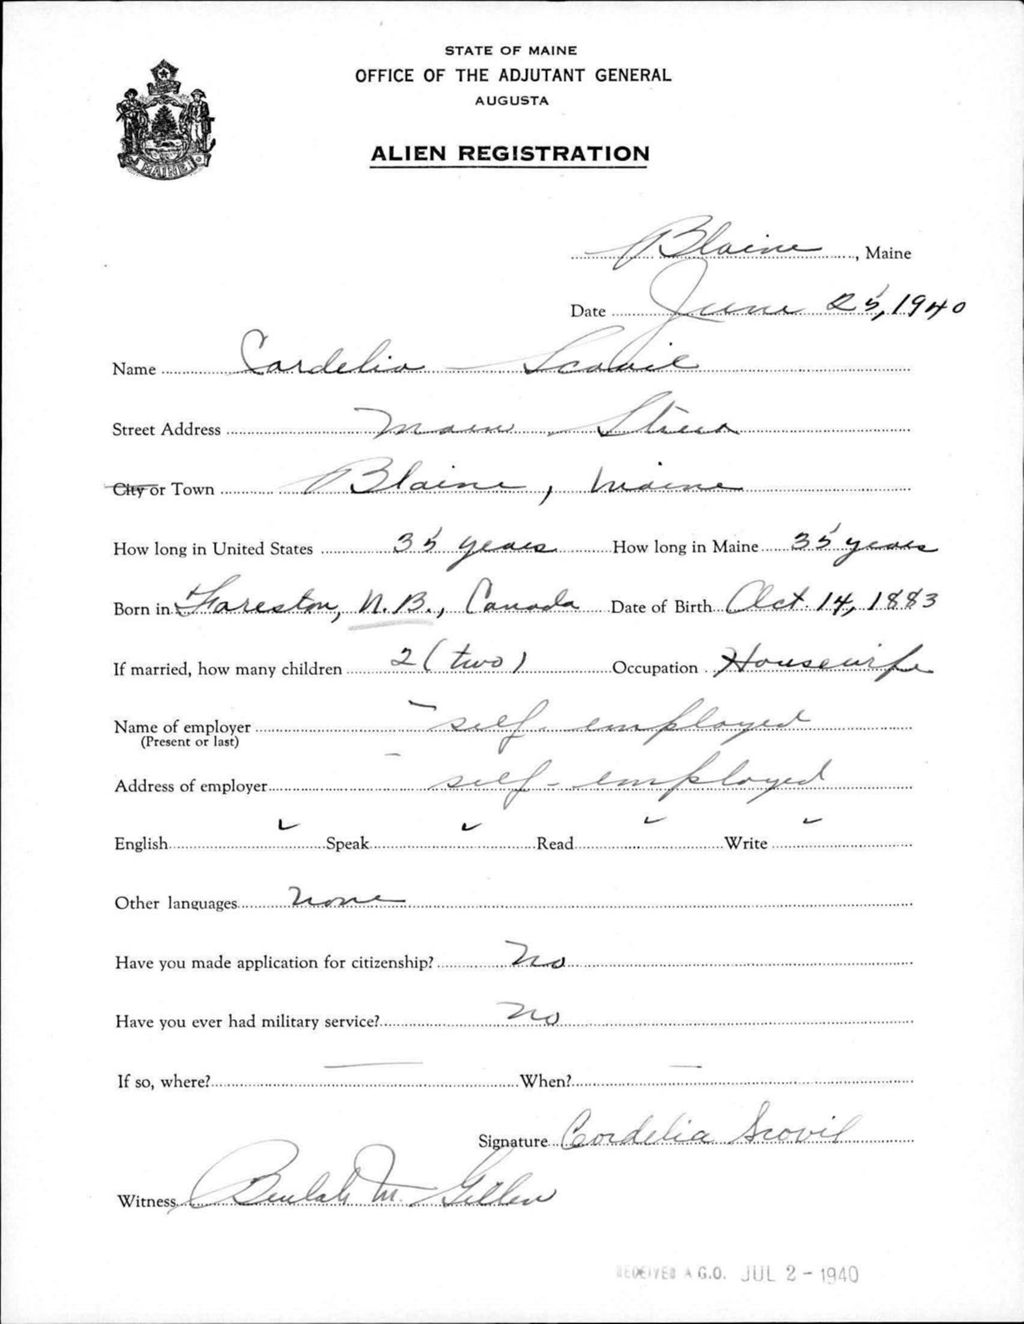 STATE OF MAINE
OFFICE OF THE ADJUTANT GENERAL
AUGUSTA
MAINE
ALIEN REGISTRATION
Blaine, Maine
Date June 25, 1940
Name Cordelia Scovil
Street Address Main Street
City or Town Blaine, Maine
How long in United States 35 years How long in Maine 35 years
Born in Hareston, N.B., Canada Date of Birth Oct. 14, 1883
If married, how many children 2 (two) Occupation Housewife
Name of employer self-employed
(Present or last)
Address of employer self-employed
English ✓ Speak ✓ Read ✓ Write ✓
Other languages none
Have you made application for citizenship? No
Have you ever had military service? No
If so, where? — When? —
Signature Cordelia Scovil
Witness Beulah M. Gillen
RECEIVED A.G.O. JUL 2 - 1940